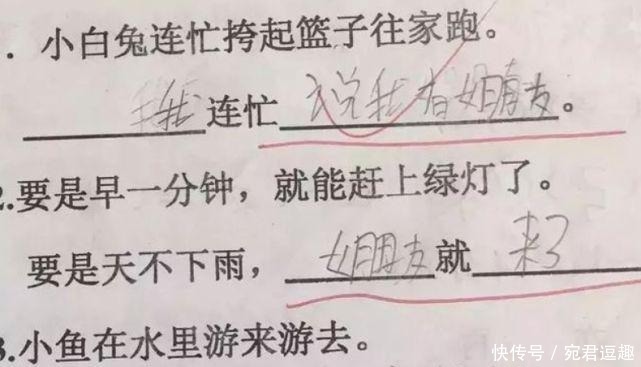 . 小白兔连忙挎起篮子往家跑。
我连忙说我有女朋友。
2.要是早一分钟，就能赶上绿灯了。
要是天不下雨，女朋友就来了
3.小鱼在水里游来游去。
快传号/宛君逗趣